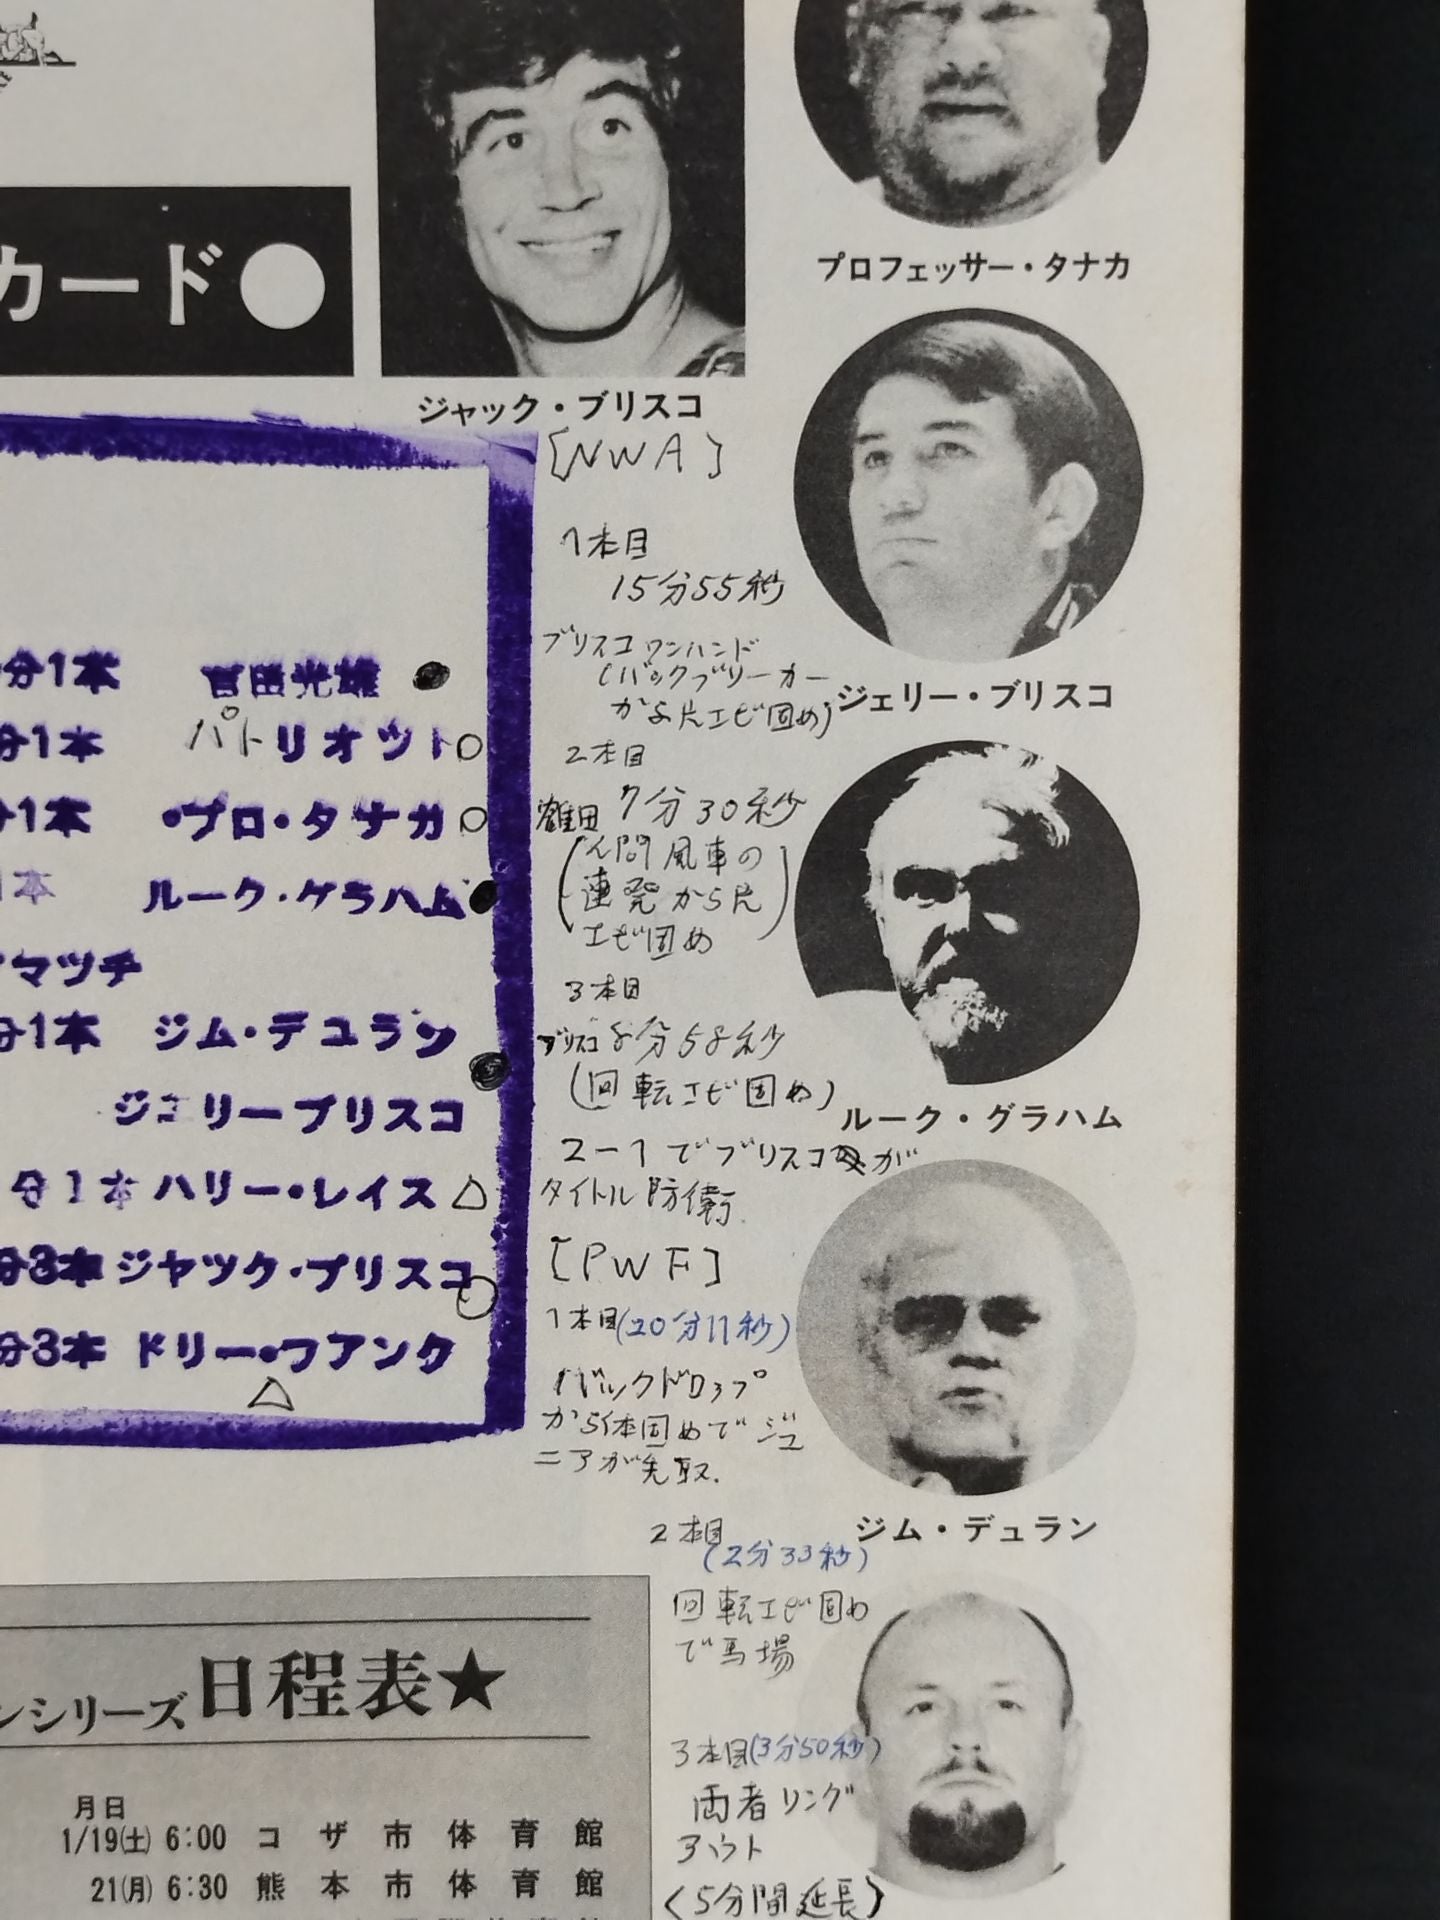 カード●
ジャック・ブリスコ
プロフェッサー・タナカ
ジェリー・ブリスコ
ルーク・グラハム
ジム・デュラン
分1本 百田光雄 ●
分1本 パトリオツト○
分1本 ・プロ・タナカ○
1本 ルーク・グラハム●
マツチ
分1本 ジム・デュラン
●
ジェリーブリスコ
分1本 ハリー・レイス△
分3本 ジヤツク・ブリスコ○
分3本 ドリー・フアンク
△
[NWA]
1本目
15分55秒
ブリスコワンハンド
(バックブリーカー
から片エビ固め)
2本目
鶴田 7分30秒
(人間風車の
連発から片
エビ固め)
3本目
ブリスコ8分58秒
(回転エビ固め)
2-1でブリスコが
タイトル防衛
[PWF]
1本目(20分11秒)
バックドロップ
から体固めでジュ
ニアが先取.
2本目
(2分33秒)
回転エビ固め
で馬場
3本目(3分50秒)
両者リング
アウト
(5分間延長)
ンシリーズ日程表★
月日
1/19(土) 6:00 コザ市体育館
21(月) 6:30 熊本市体育館